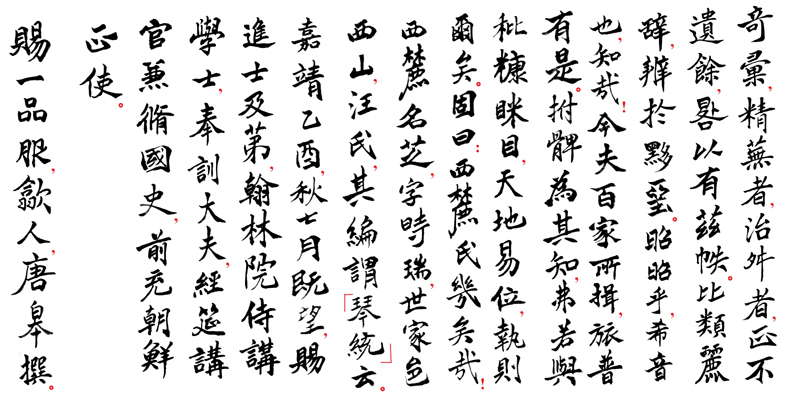 奇彙，精蕪者，治舛者，正不
遺餘，晷以有茲帙。比類麗
辭，辨於黟壁。昭昭乎，希音
也，知哉！今夫百家所揖，旅普
有是。拊髀為其知，弗若與
秕糠眯目，天地易位，執則
爾矣。固曰：西麓氏幾矣哉！
西麓名芝，字時瑞，世家邑
西山，汪氏，其編謂「琴統」云。
嘉靖乙酉，秋七月既望，賜
進士及第，翰林院侍講
學士，奉訓大夫，經筵講
官兼脩國史，前充朝鮮
正使。
賜一品服，歙人，唐皋撰。